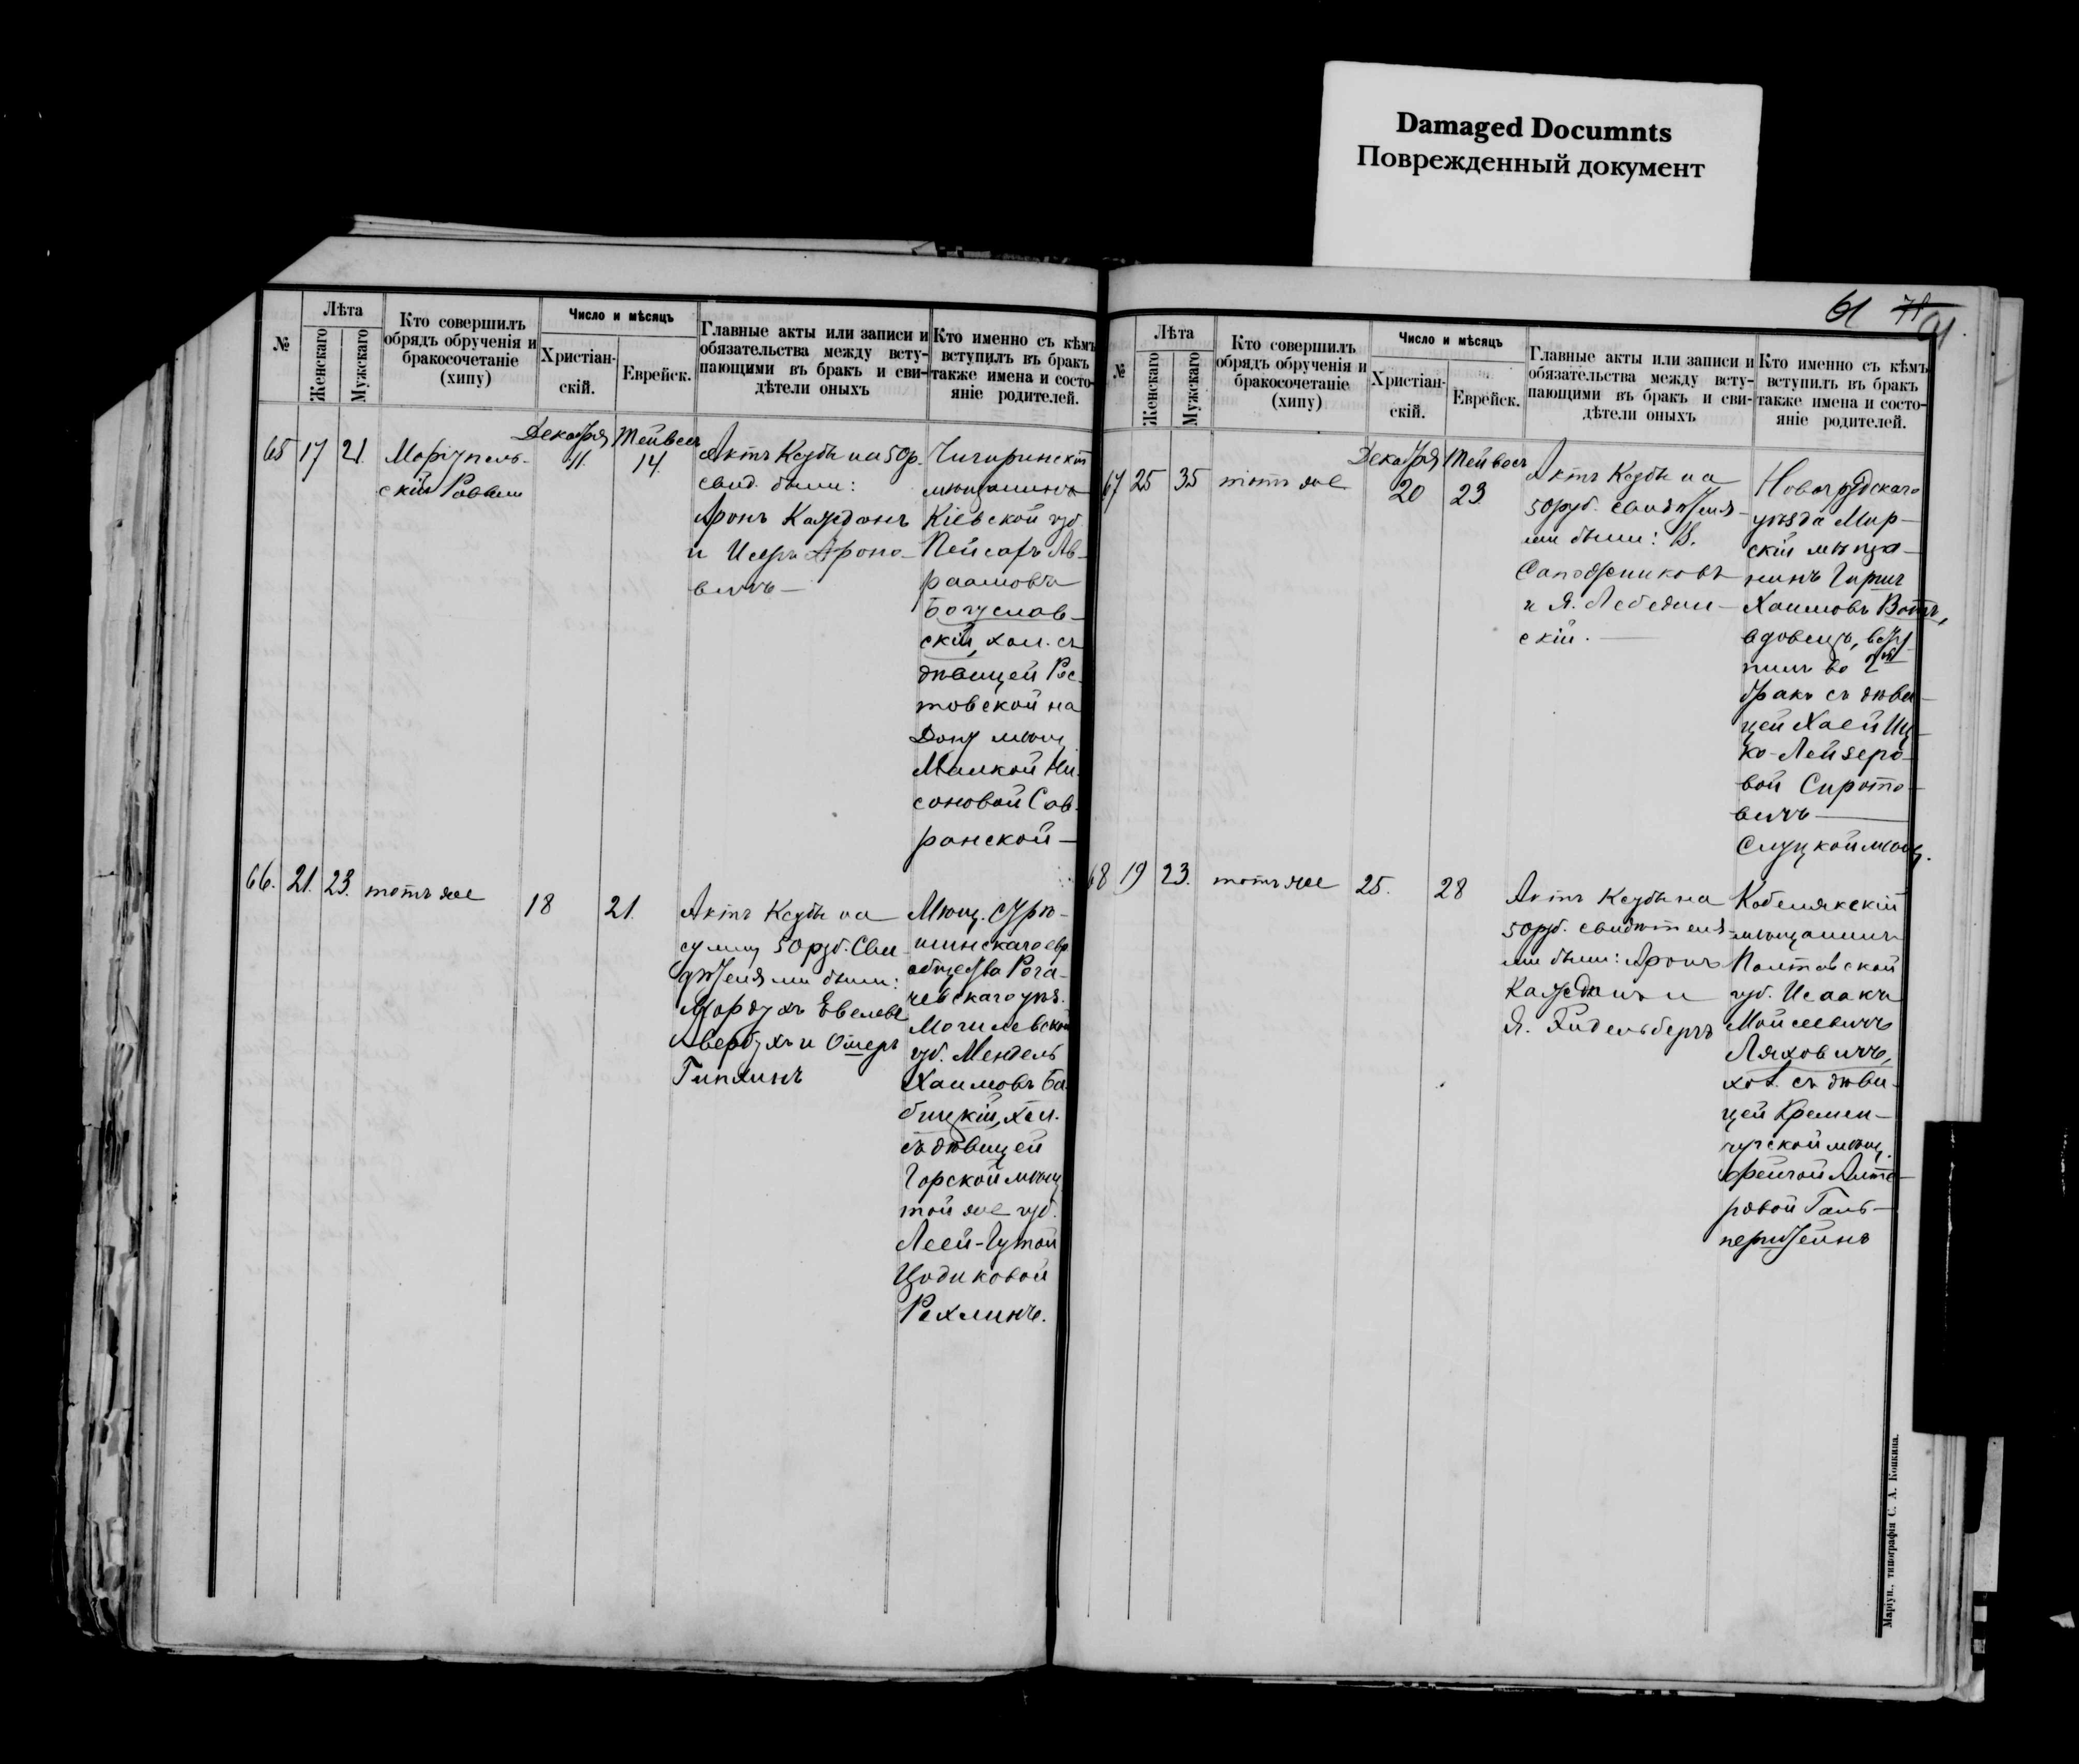 Damaged Documnts
Поврежденный документ
№
Лѣта
Женскаго
Мужскаго
Кто совершилъ
обрядъ обрученія и
бракосочетаніе
(хипу)
Число и мѣсяцъ
Христіан-
скій.
Еврейск.
Главные акты или записи и
обязательства между всту-
пающими въ бракъ и сви-
дѣтели оныхъ
Кто именно съ кѣмъ
вступилъ въ бракъ
также имена и состо-
яніе родителей.
65 17 21.
Маріуполь-
скій Равви
Декабря
11.
Тейвесъ
14.
Актъ Ксубы на 50 р.
свид. были:
Аронъ Каждонъ
и Исеръ Ароно-
вичъ —
Чигиринскій
мѣщанинъ
Кіевской губ.
Пейсахъ Ав-
раамовъ
Богуслав-
скій, хол. съ
дѣвицей Рос-
товской на
Дону мѣщ.
Малкой Ни-
соновой Сав-
ранской —
66. 21. 23.
тотъ же
18
21.
Актъ Ксубы на
сумму 50 руб. Сви-
дѣтелями были:
Мордухъ Евелевъ
Авербухъ и Ошеръ
Гиплинъ
Мѣщ.
общества Рога-
чевскаго уѣз.
Могилевской
губ. Мендель
Хаимовъ Ба-
бицкій, хол.
съ дѣвицей
Горской мѣщ.
той же губ.
Леей-Гутой
Цодиковой
Рехлинъ.
61 71
№
Лѣта
Женскаго
Мужскаго
Кто совершилъ
обрядъ обрученія и
бракосочетаніе
(хипу)
Число и мѣсяцъ
Христіан-
скій.
Еврейск.
Главные акты или записи и
обязательства между всту-
пающими въ бракъ и сви-
дѣтели оныхъ
Кто именно съ кѣмъ
вступилъ въ бракъ
также имена и состо-
яніе родителей.
67 25 35
тотъ же
Декабря
20
Тейвесъ
23
Актъ Ксубы на
50 руб. свидѣтеля-
ми были: В.
Сапожниковъ
и Я. Лебедин-
скій. —
Новогрудскаго
уѣзда Мир-
скій мѣща-
нинъ Гиршъ
Хаимовъ
вдовецъ, всту-
пилъ во 2й
бракъ съ дѣви-
цей Хаей Иц-
ко-Лейзеро-
вой Сирото-
вичъ —
Слуцкой мѣщ.
68 19 23.
тотъ же
25.
28
Актъ Ксубы на
50 руб. свидѣтеля-
ми были: Аронъ
Каждонъ и
Я. Гидельбергъ
Кобелякскій
мѣщанинъ
Полтавской
губ. Исаакъ
Мойсеевичъ
Ляховичъ,
хол. съ дѣви-
цей Кремен-
чугской мѣщ.
Фейгой Алте-
ровой Галь-
перштейнъ
Маріуп., типографія С. А. Копкина.